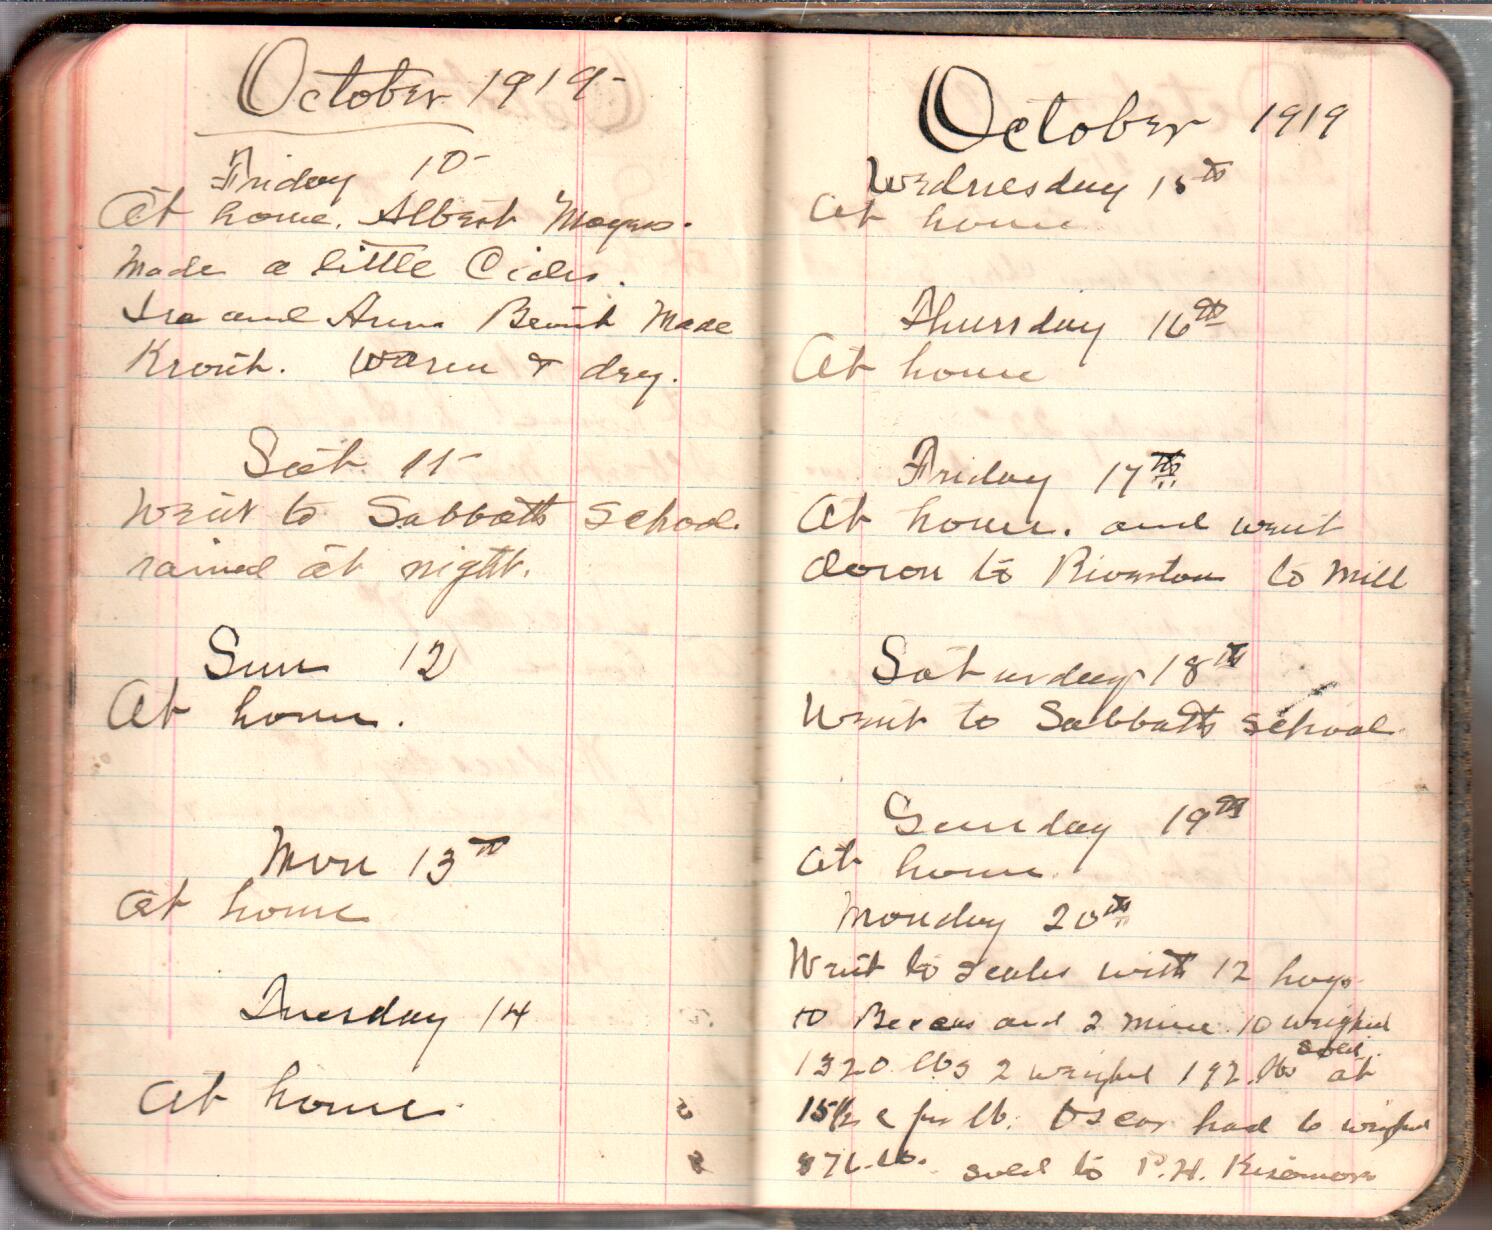 October 1919-
Friday 10-
At home. Albert Moyers.
Made a little Cider.
Ira and Anna Made
Krout. Warm & dry.
Sat. 11-
Went to Sabbath School.
rained at night.
Sun 12
At home.
Mon 13th
At home
Tuesday 14
At home.
October 1919
Wednesday 15th
At home
Thursday 16th
At home
Friday 17th
At home. and went
down to Riverton to Mill
Saturday 18th
Went to Sabbath School
Sunday 19th
At home.
Monday 20th
Went to scales with 12 hogs
10 and 2 mine 10 weighed
1320 lbs 2 weighed 192 lbs sold at
15½ c per lb. Oscar had 6 weighed
876 lb. sold to P.H.